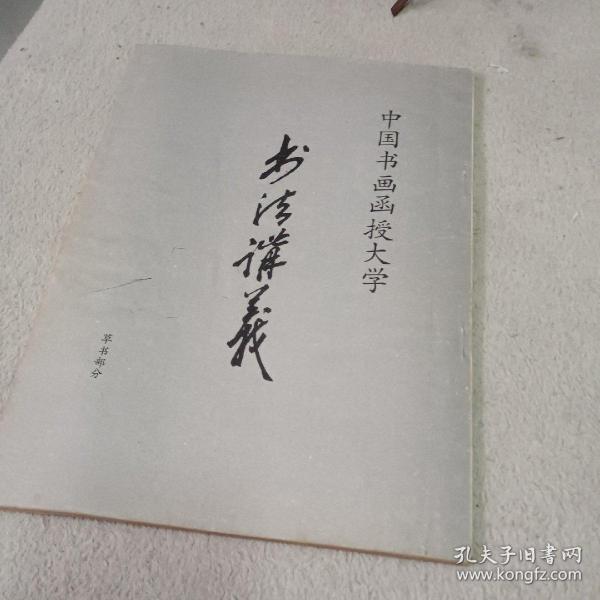 中国书画函授大学
书法講義
草书部分
孔夫子旧書网
www.kongfz.com